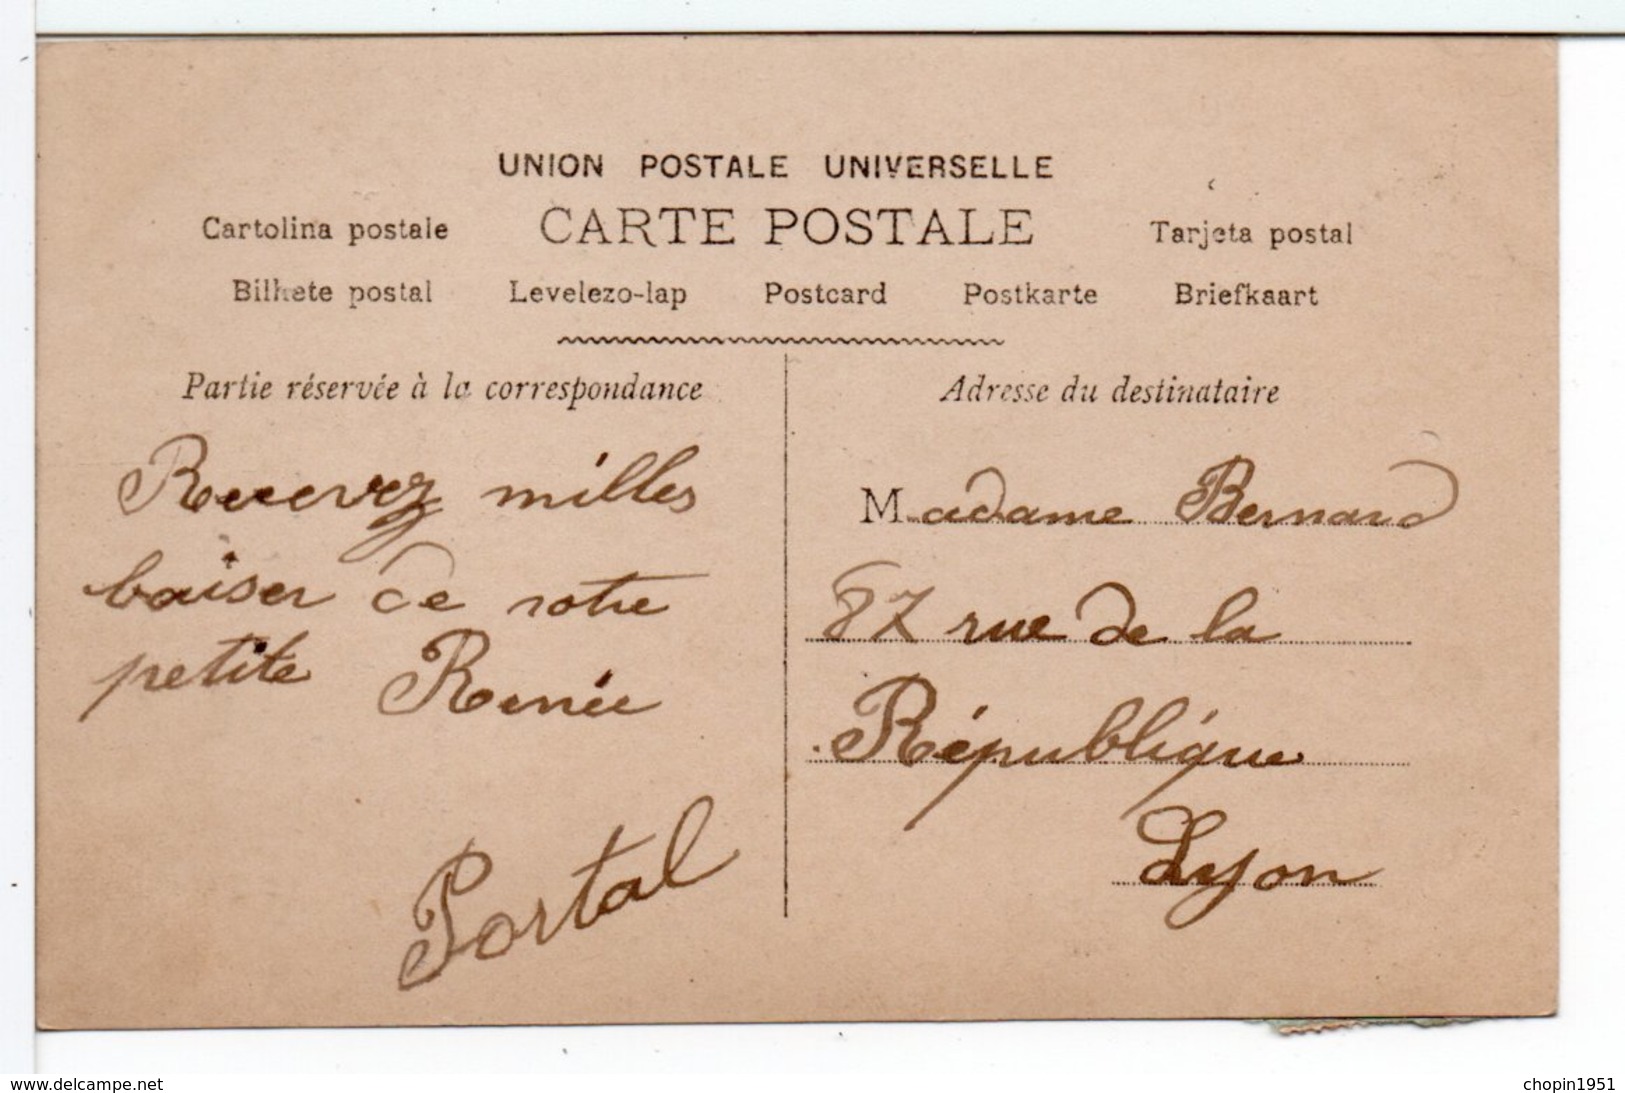 UNION POSTALE UNIVERSELLE
Cartolina postale CARTE POSTALE Tarjeta postal
Bilhete postal Levelezo-lap Postcard Postkarte Briefkaart
Partie réservée à la correspondance
Recevez milles
baiser de notre
petite Renée
Portal
Adresse du destinataire
Madame Bernard
87 rue de la
République
Lyon
www.delcampe.net
chopin1951